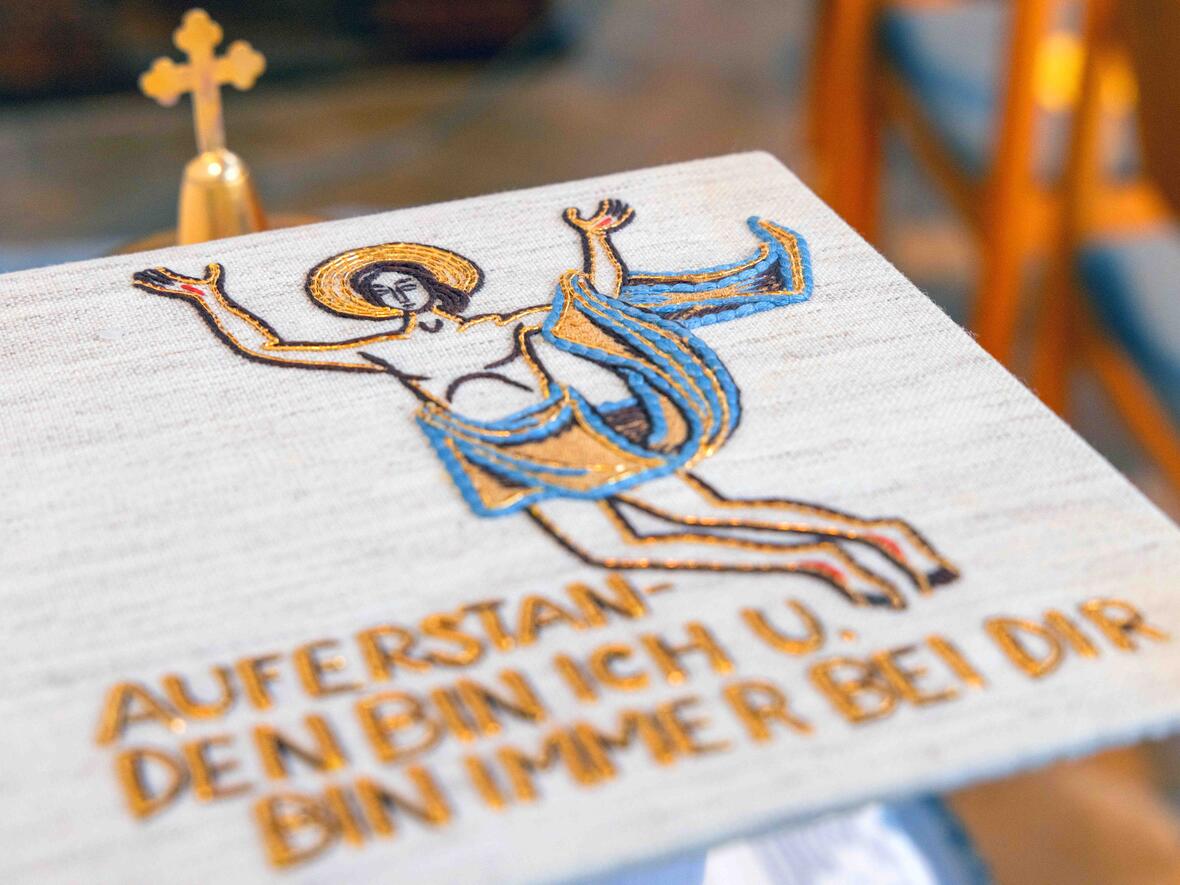 AUFERSTAN-
DEN BIN ICH U.
BIN IMMER BEI DIR